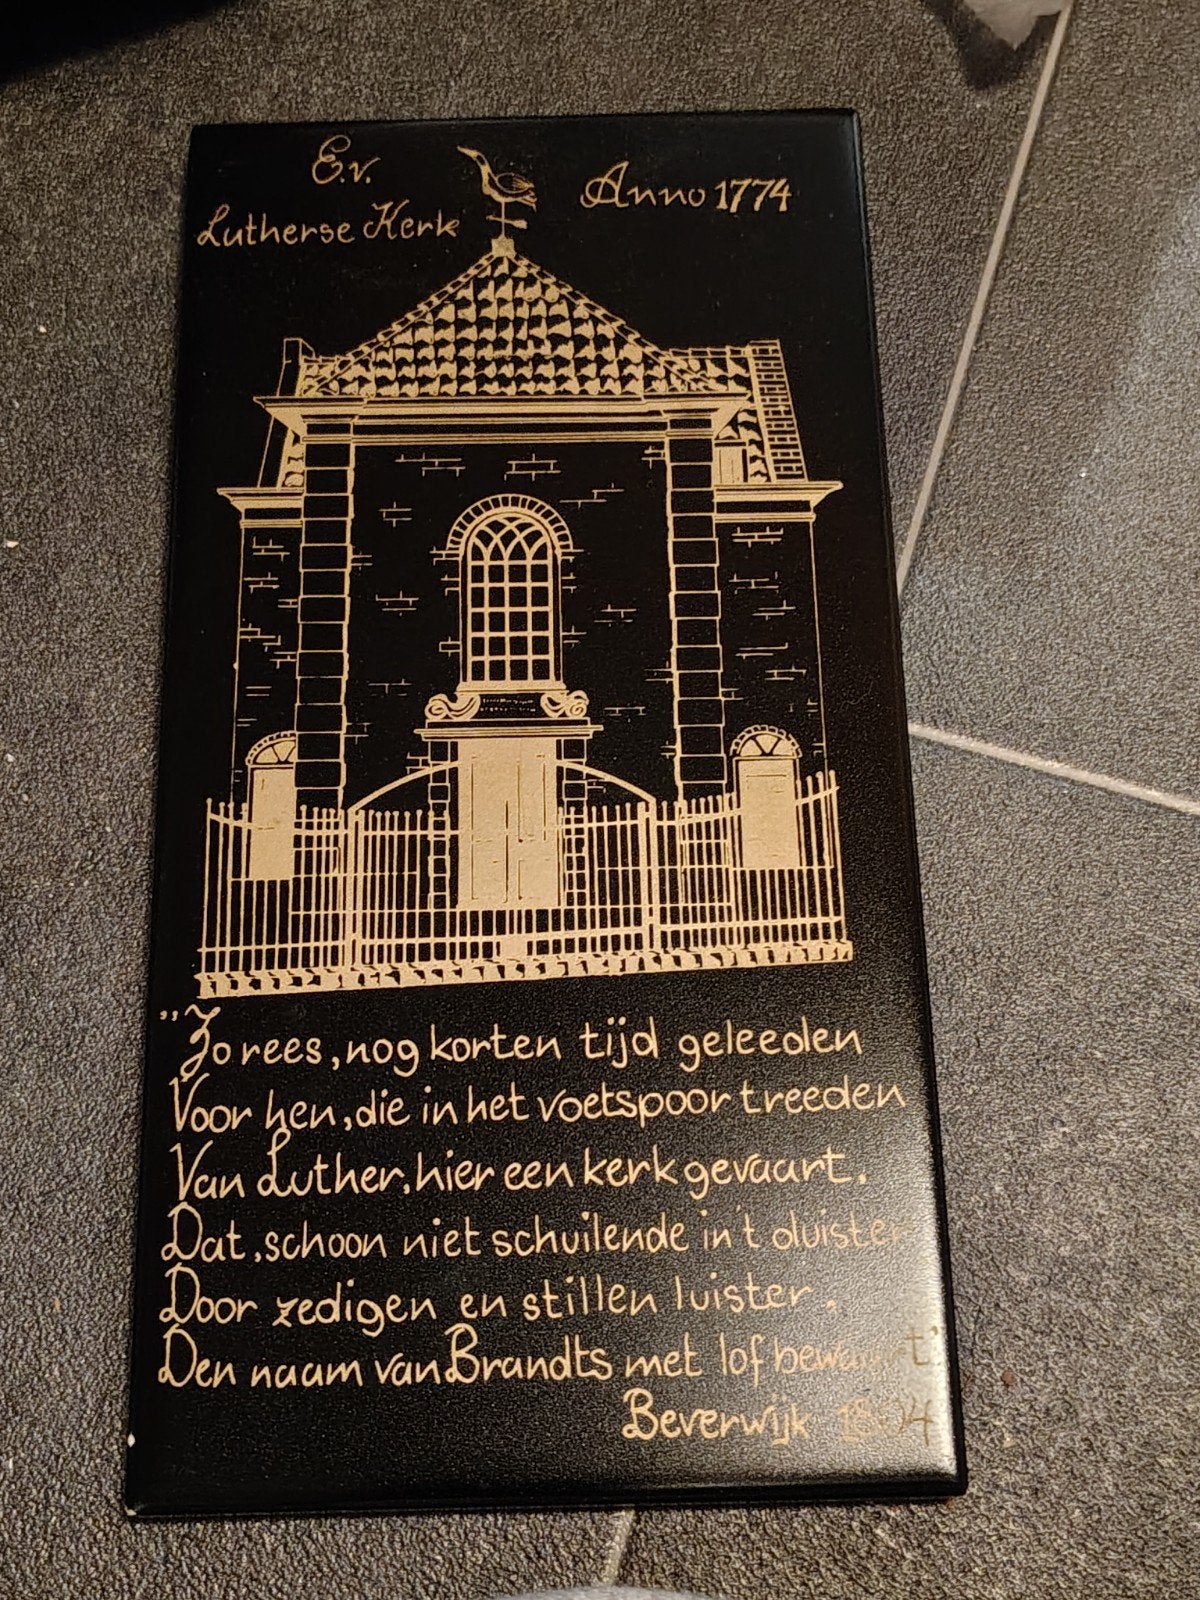 E.v.
Lutherse Kerk
Anno 1774
"Zo rees, nog korten tijd geleeden
Voor hen, die in het voetspoor treeden
Van Luther, hier een kerk gevaart.
Dat, schoon niet schuilende in 't duister
Door zedigen en stillen luister,
Den naam van Brandts met lof
Beverwijk